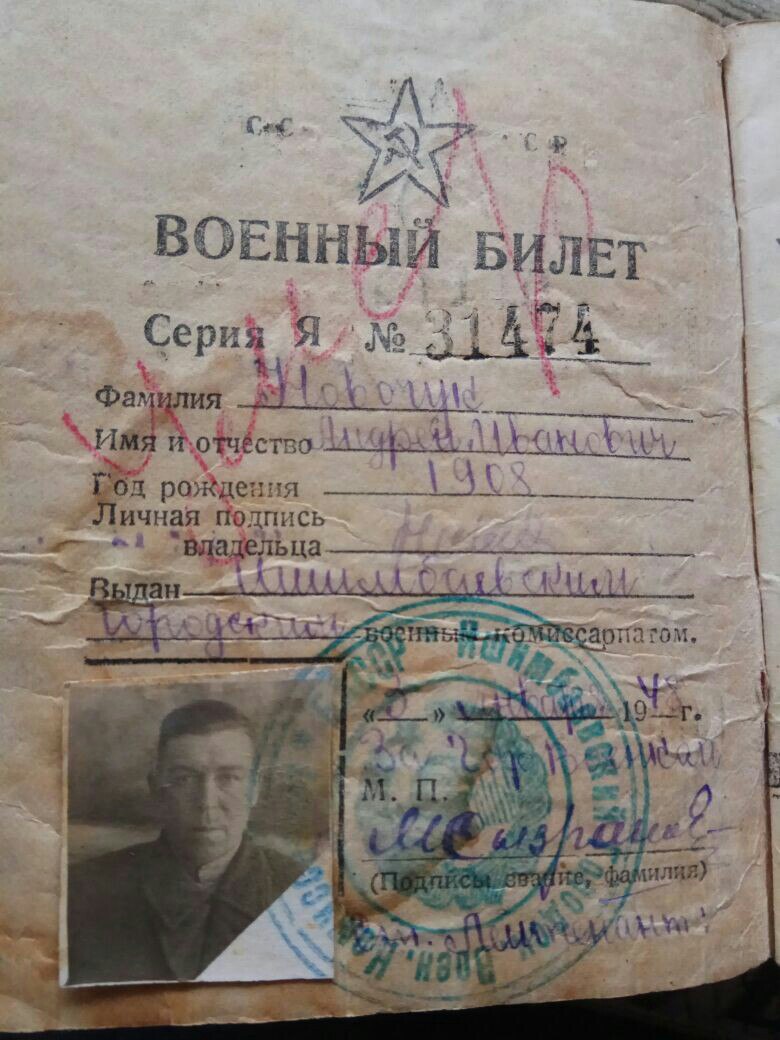 С С С Р
ВОЕННЫЙ БИЛЕТ
Серия Я № 31474
умер
Фамилия Новочук
Имя и отчество Андрей Иванович
Год рождения 1908
Личная подпись
владельца
Выдан Ишимбаевским
городским военным комиссариатом.
«3» января 1948 г.
За Гор Военком
М. П.
(Подпись, звание, фамилия)
Лейтенант